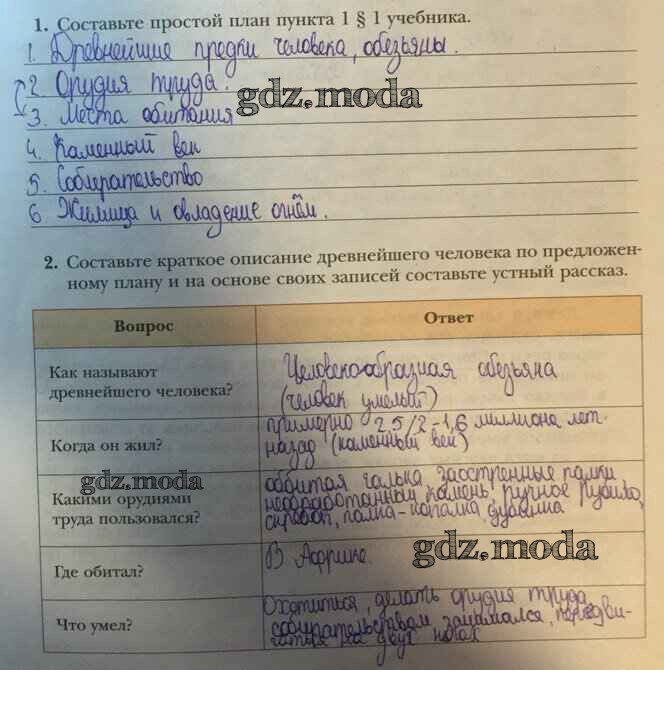 1. Составьте простой план пункта 1 § 1 учебника.
1. Древнейшие предки человека, обезьяны.
2. Орудия труда.
gdz.moda
3. Места обитания
4. Каменный век
5. Собирательство
6 Жилища и овладение огнём.
2. Составьте краткое описание древнейшего человека по предложен-
ному плану и на основе своих записей составьте устный рассказ.
Вопрос
Ответ
Как называют
древнейшего человека?
Человекообразная обезьяна
(человек умелый)
Когда он жил?
примерно 2,5/2-1,6 миллиона лет
назад (каменный век)
gdz.moda
Какими орудиями
труда пользовался?
оббитая галька заостренные палки
необработанный камень, ручное рубило,
скребок, палка-копалка, дубинка
Где обитал?
В Африке.
gdz.moda
Что умел?
Охотиться, делать орудия труда,
собирательством занимался, передви-
гаться на двух ногах